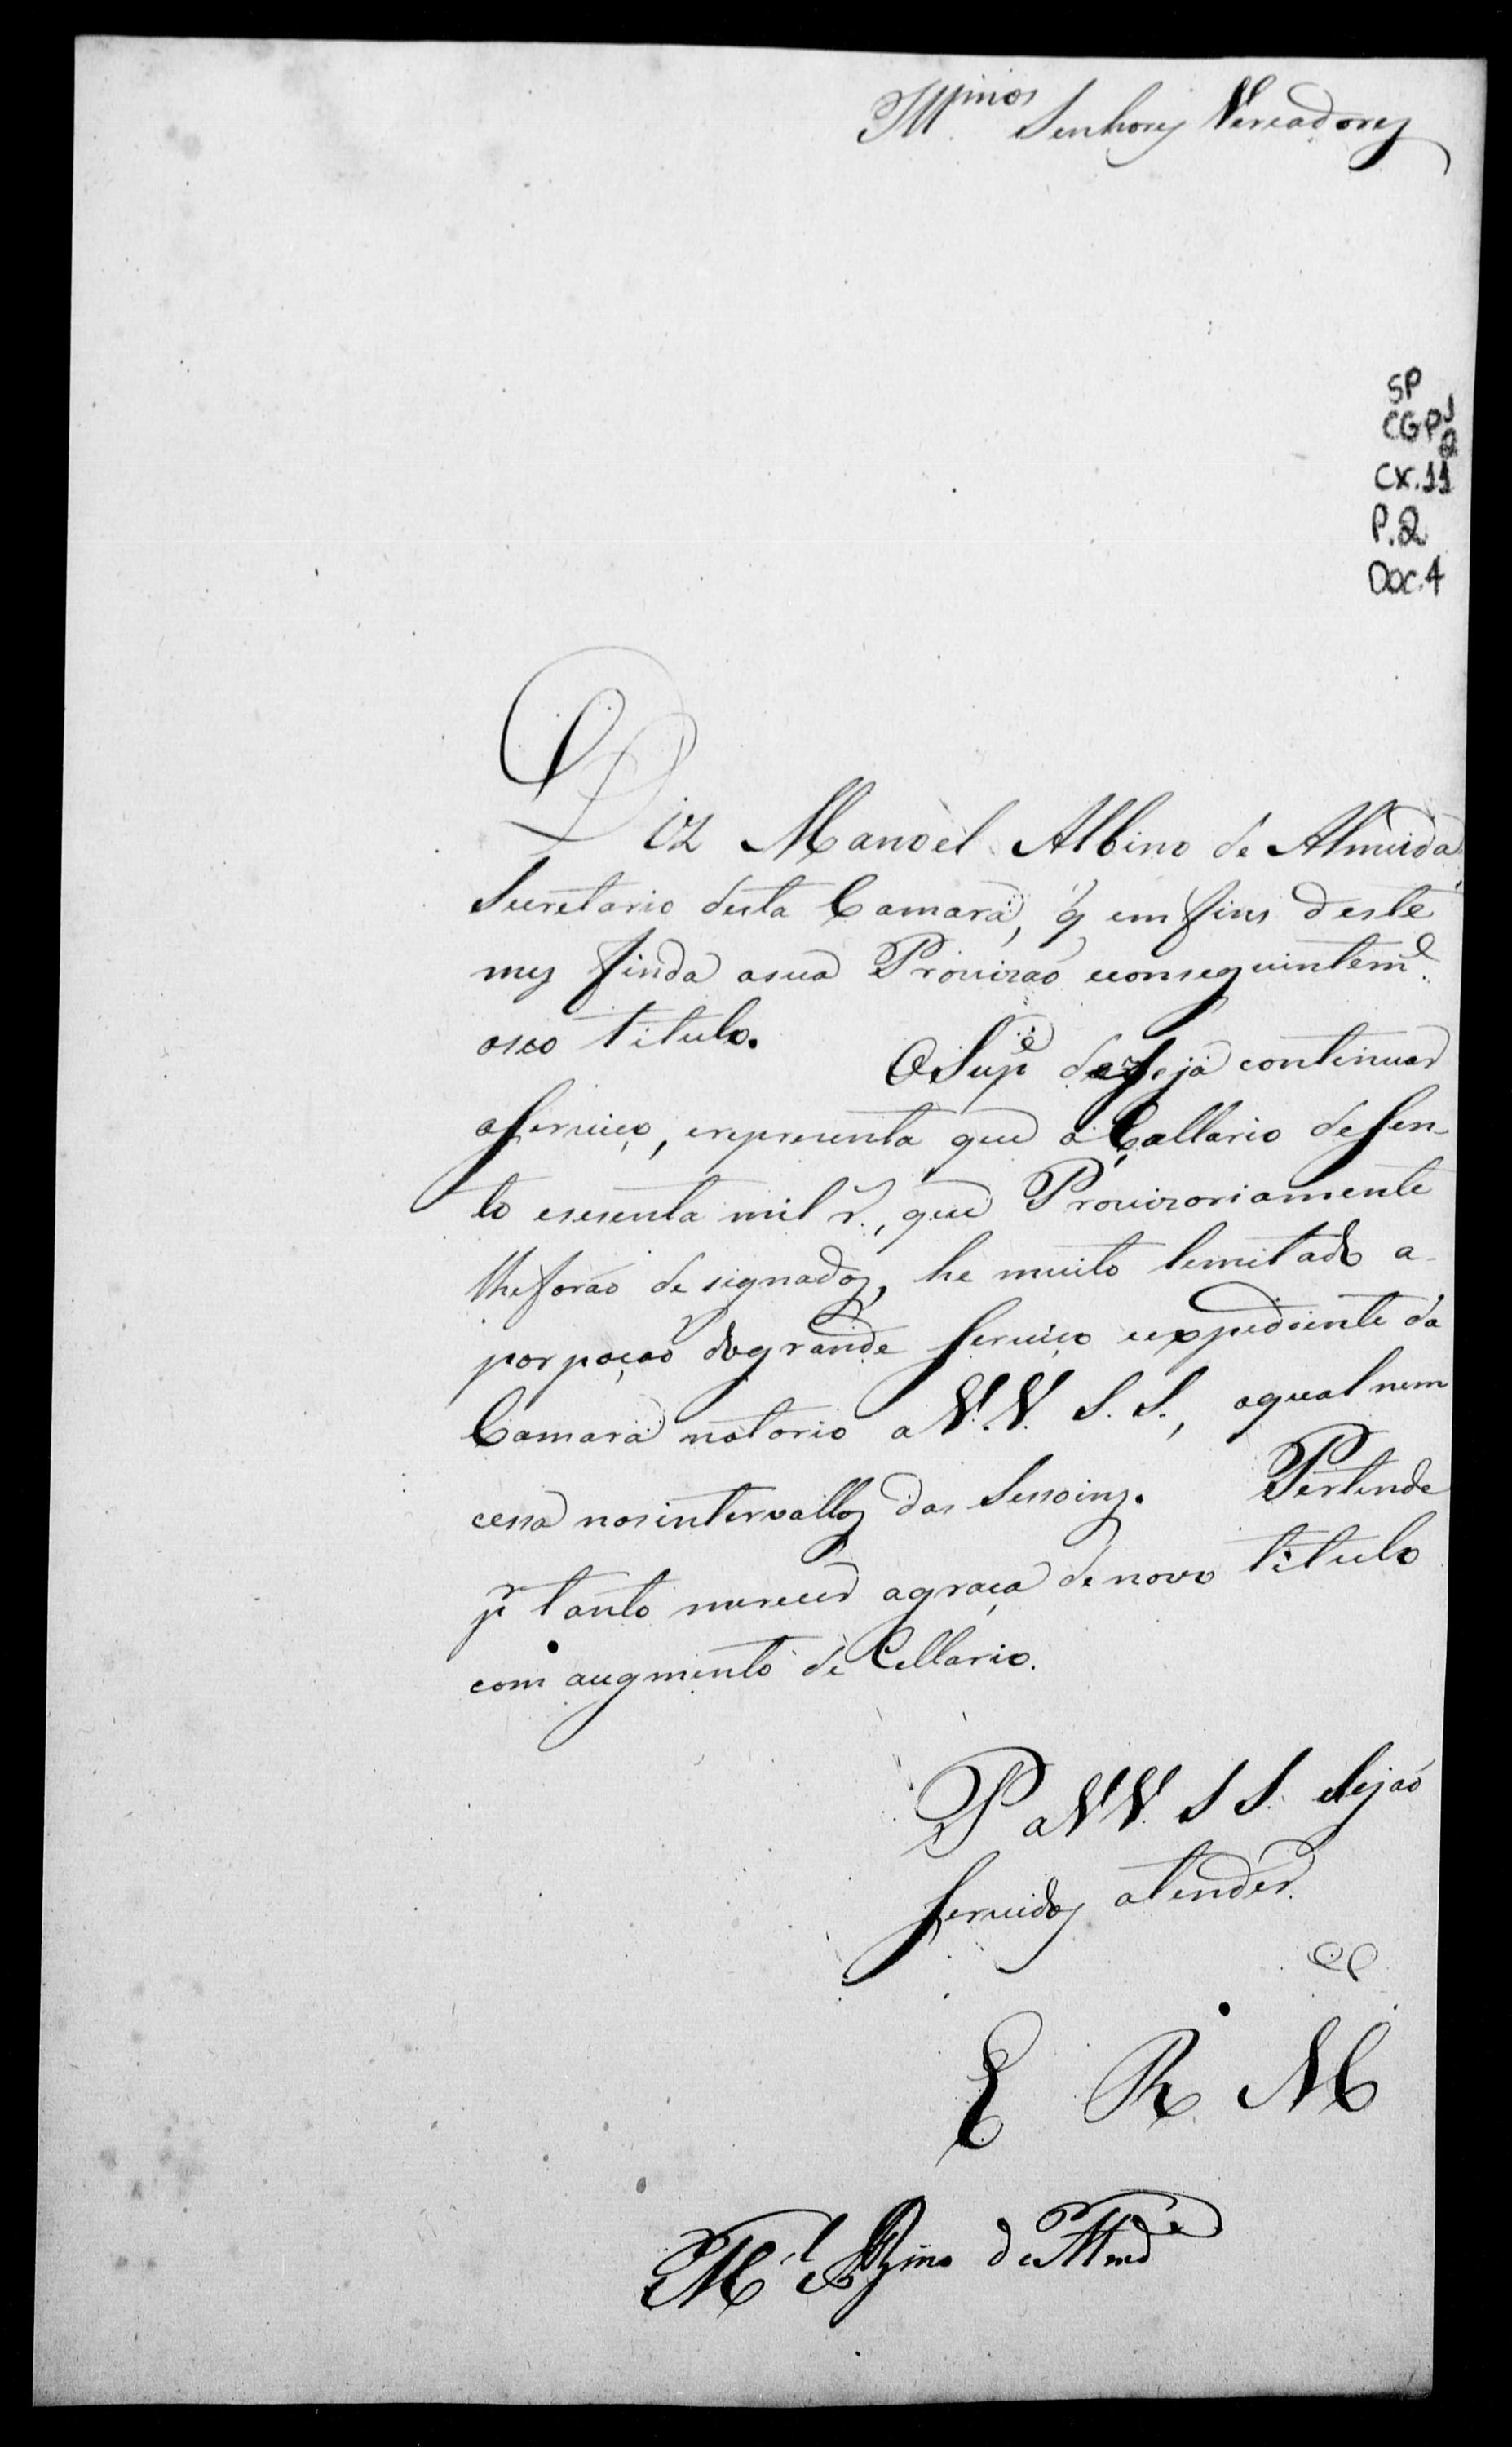 Illmos Senhores Vereadores
SP
CGP1
2
CX.11
P.2
DOC.4
Diz Manoel Albino de Almeida,
Secretario desta Camara, q̃ em fins deste
mes finda asua Provizaõ econseguintemᵉ
oseo titulo. OSupᵉ dezeja continuar
aServiço, erepresenta que o Çallario deSen-
to esesenta mil r., que Provizoriamente
lheforaõ designados, he muito lemitado a-
porpoçaõ dogrande Serviço eexpediente da
Camara notorio a V.V. S.S., aqual nem
cessa nosintervallos das Sessoins. Pertende
pʳ tanto merecer agraça denovo titulo
com augmento de Cellario.
P a VV. SS. Sejaõ
Servidos atender.
E R M
Mel Albino de Almdᵃ